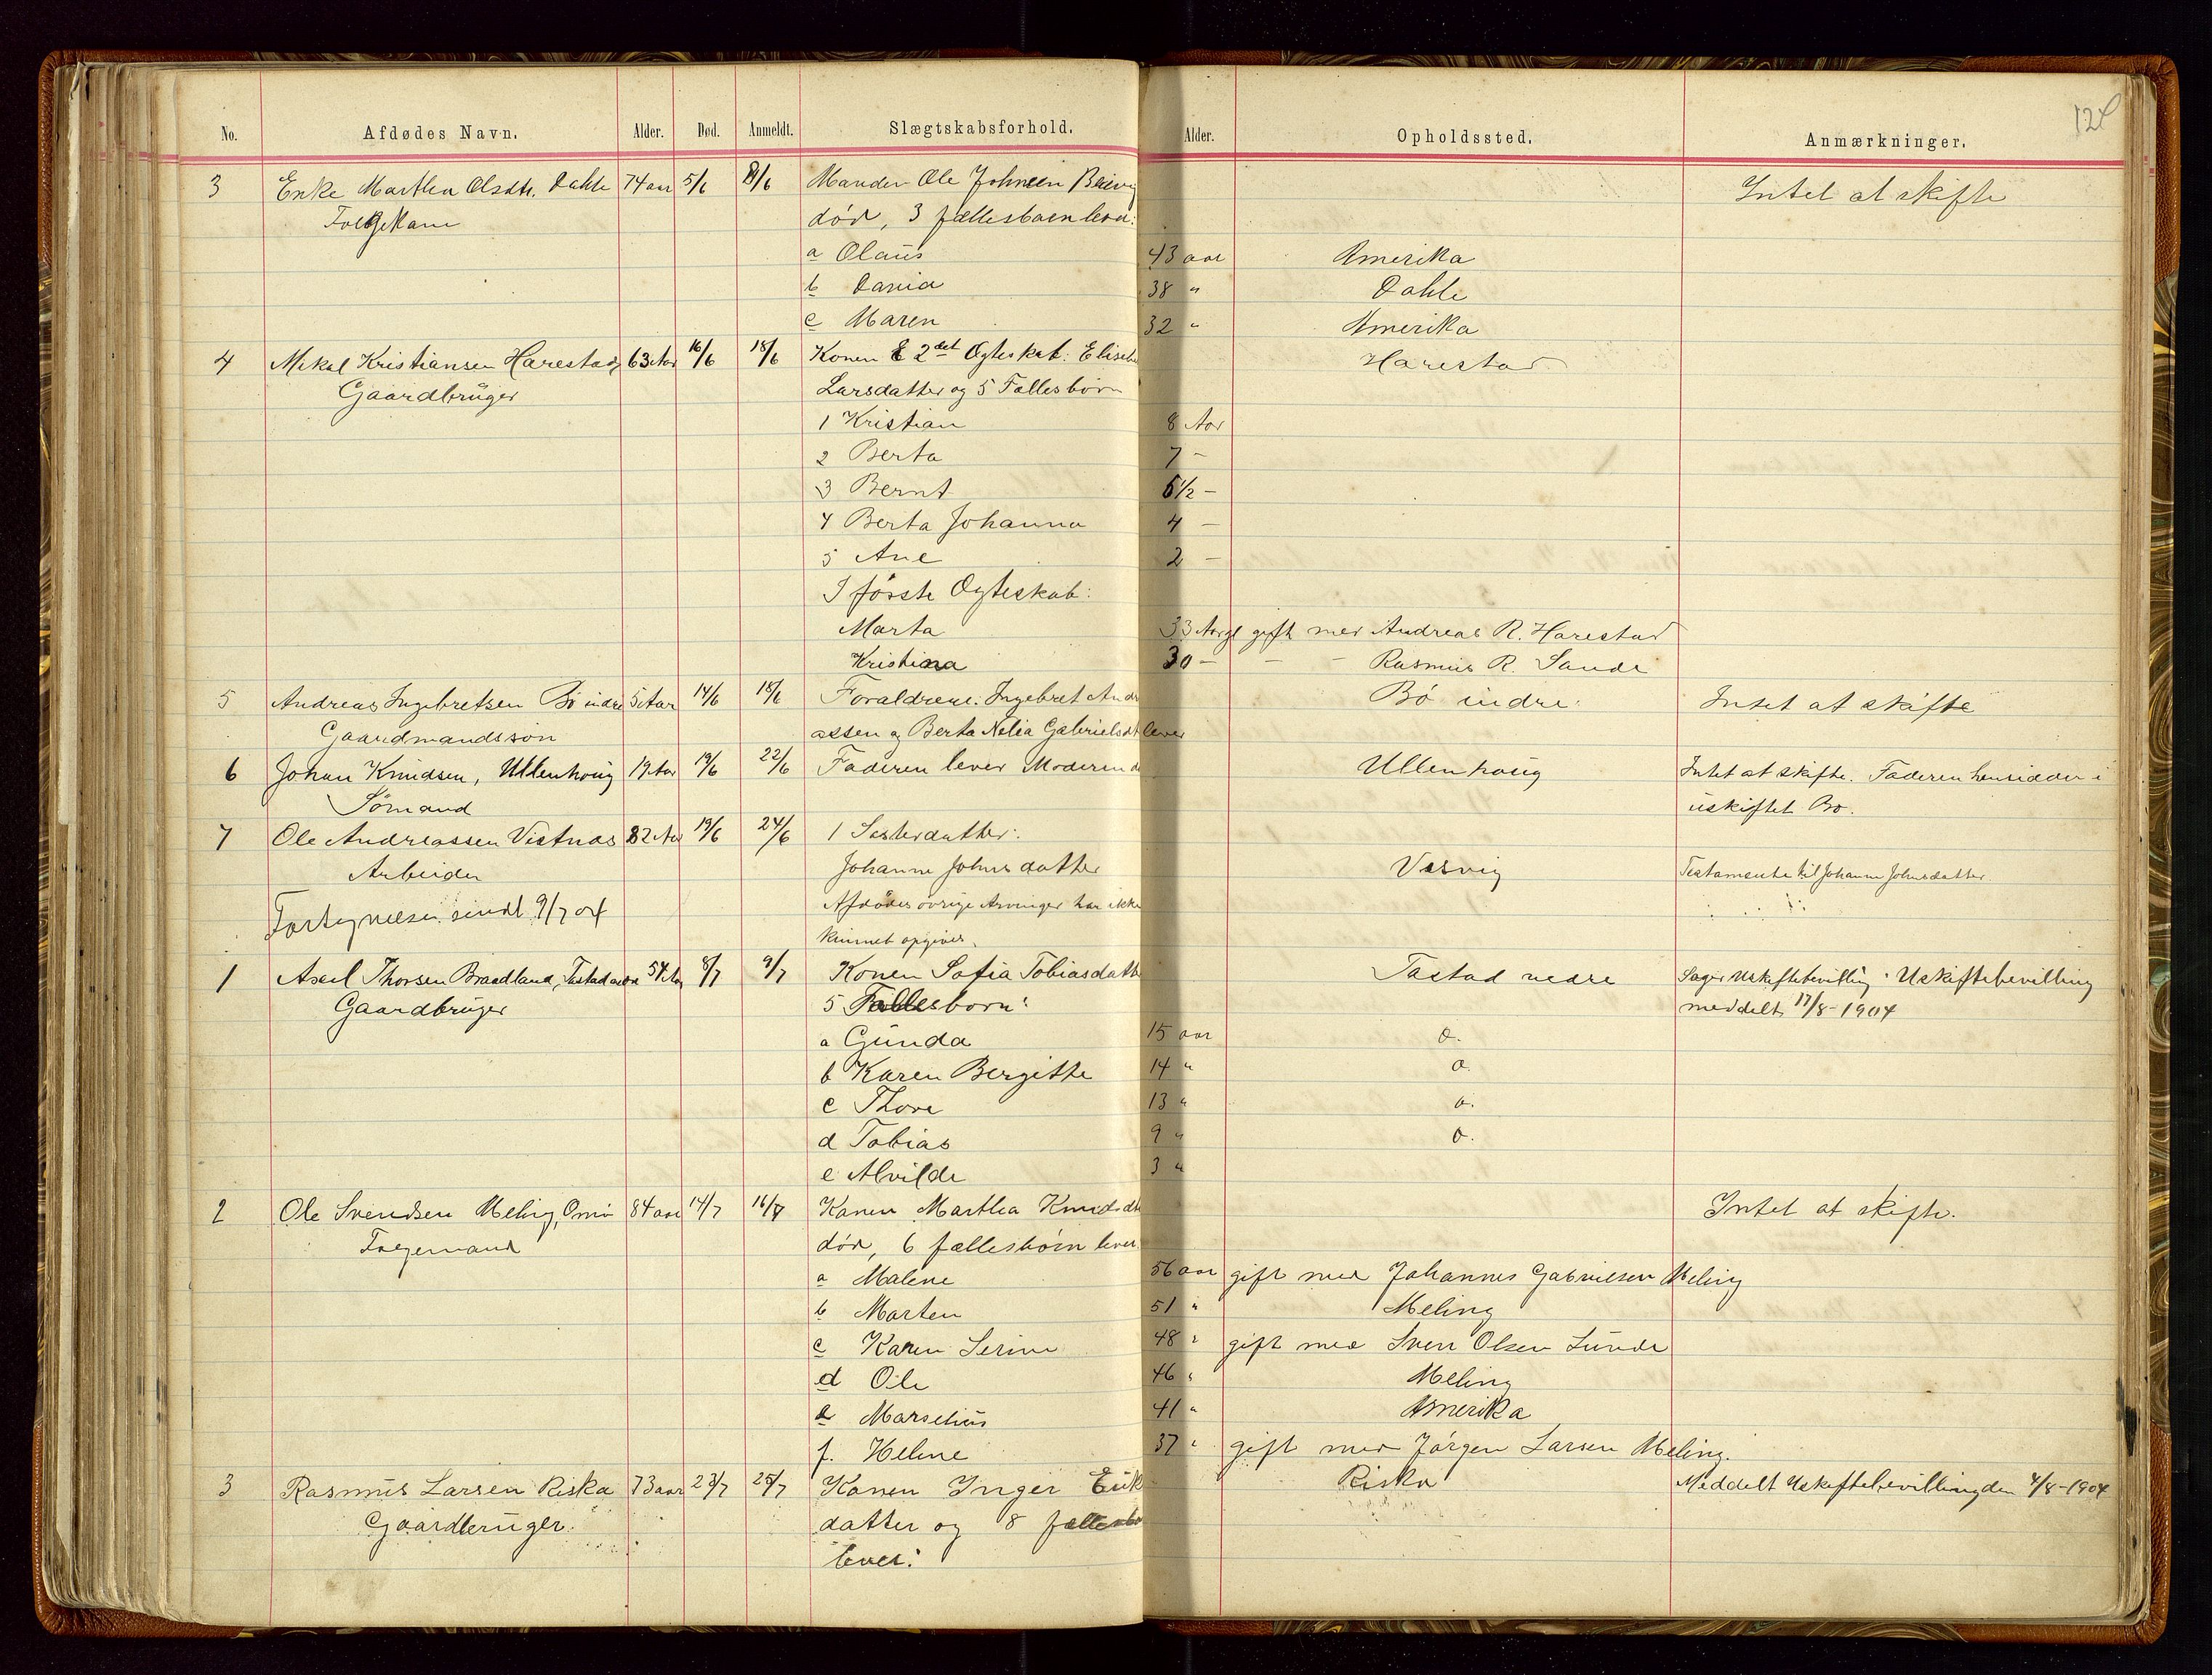 124
No. Afdødes Navn. Alder. Død. Anmeldt. Slægtskabsforhold. Alder. Opholdssted. Anmærkninger.
3 Enke Marthea Olsdtr. Dahle 74 aar 5/6 8/6 Manden Ole Johnsen Intet at skifte
Folgekone død, 3 fællesbørn lever:
a Olaus 43 aar Amerika
b Dania 38 " Dahle
c Maren 32 " Amerika
4 Mikal Kristiansen Harestad 63 Aar 16/6 18/6 Konen 2det Ægteskab: Harestad
Gaardbruger Larsdatter og 5 Fællesbørn
1 Kristian 8 Aar
2 Berta 7 -
3 Bernt 5 1/2 -
4 Berta Johanna 4 -
5 Ane 2 -
I første Ægteskab:
Marta 33 Aar gift med Andreas R. Harestad
Kristina 30 - - - Rasmus R. Sande
5 Andreas Ingebretsen Bø indre 5 Aar 14/6 18/6 Forældrene: Ingebret Andr Bø indre Intet at skifte
Gaardmandssøn assen og Berta Nelia Gabrielsdt lever
6 Johan Knudsen, Ullenhoug 19 Aar 19/6 22/6 Faderen lever Moderen d Ullenhaug Intet at skifte. Faderen hensidder i
Sømand uskiftet Bo.
7 Ole Andreassen Vistnæs 82 Aar 19/6 24/6 1 Søsterdatter:
Arbeider Johanne Johnsdatter Vasvig Testamente til Johanne Johnsdatter
Fortegnelsen sendt 9/7 04 Afdødes øvrige Arvinger har ikke
kunnet opgives.
1 Axel Thorsen Braadland, Tastad nedre 54 Aar 8/7 9/7 Konen Sofia Tobiasdatt Tastad nedre Søger Uskiftebevilling. Uskiftebevilling
Gaardbruger 5 Fællesbørn: meddelt 17/8-1904
a Gunda 15 aar o.
b Karen Bergitte 14 " o.
c Thore 13 " o.
d Tobias 9 " o.
e Alvilde 3 "
2 Ole Svendsen Meling, Omø 84 aar 14/7 16/7 Konen Marthea Knudsdt Intet at skifte.
Folgemand død, 6 fællesbørn lever
a Malene 56 aar gift med Johannes Gabrielsen Meling
b Morten 51 " Meling
c Karen Serine 48 " gift med Sven Olsen Lunde
d Ole 46 " Meling
e Marselius 41 " Amerika
f. Helene 37 " gift med Jørgen Larsen Meling.
3 Rasmus Larsen Riska 73 aar 23/7 25/7 Konen Inger Erik Riska Meddelt Uskiftebevilling den 4/8-1904
Gaardbruger. datter og 8 fællesbø
lever: